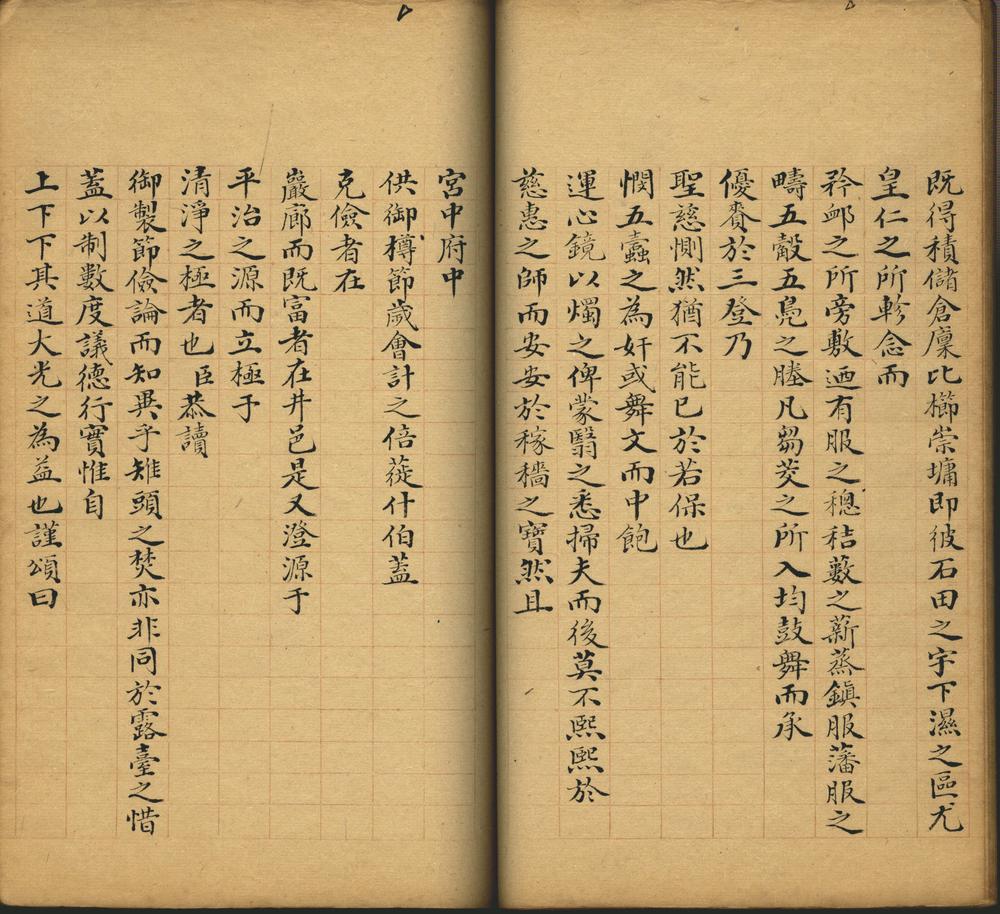 既得積儲倉廩比櫛崇墉即彼石田之宇下濕之區尤
皇仁之所軫念而
矜卹之所旁敷迺有服之穗秸藪之薪蒸鎮服藩服之
疇五穀五鳧之塍凡芻茭之所入均鼓舞而承
優賚於三登乃
聖慈惻然猶不能已於若保也
憫五蠹之為奸或舞文而中飽
運心鏡以燭之俾蒙翳之悉掃夫而後莫不熙熙於
慈惠之師而安安於稼穡之寶然且
宮中府中
供御樽節歲會計之倍蓰什伯蓋
克儉者在
巖廊而既富者在井邑是又澄源于
平治之源而立極于
清淨之極者也臣恭讀
御製節儉論而知異乎雉頭之焚亦非同於露臺之惜
蓋以制數度議德行實惟自
上下下其道大光之為益也謹頌曰